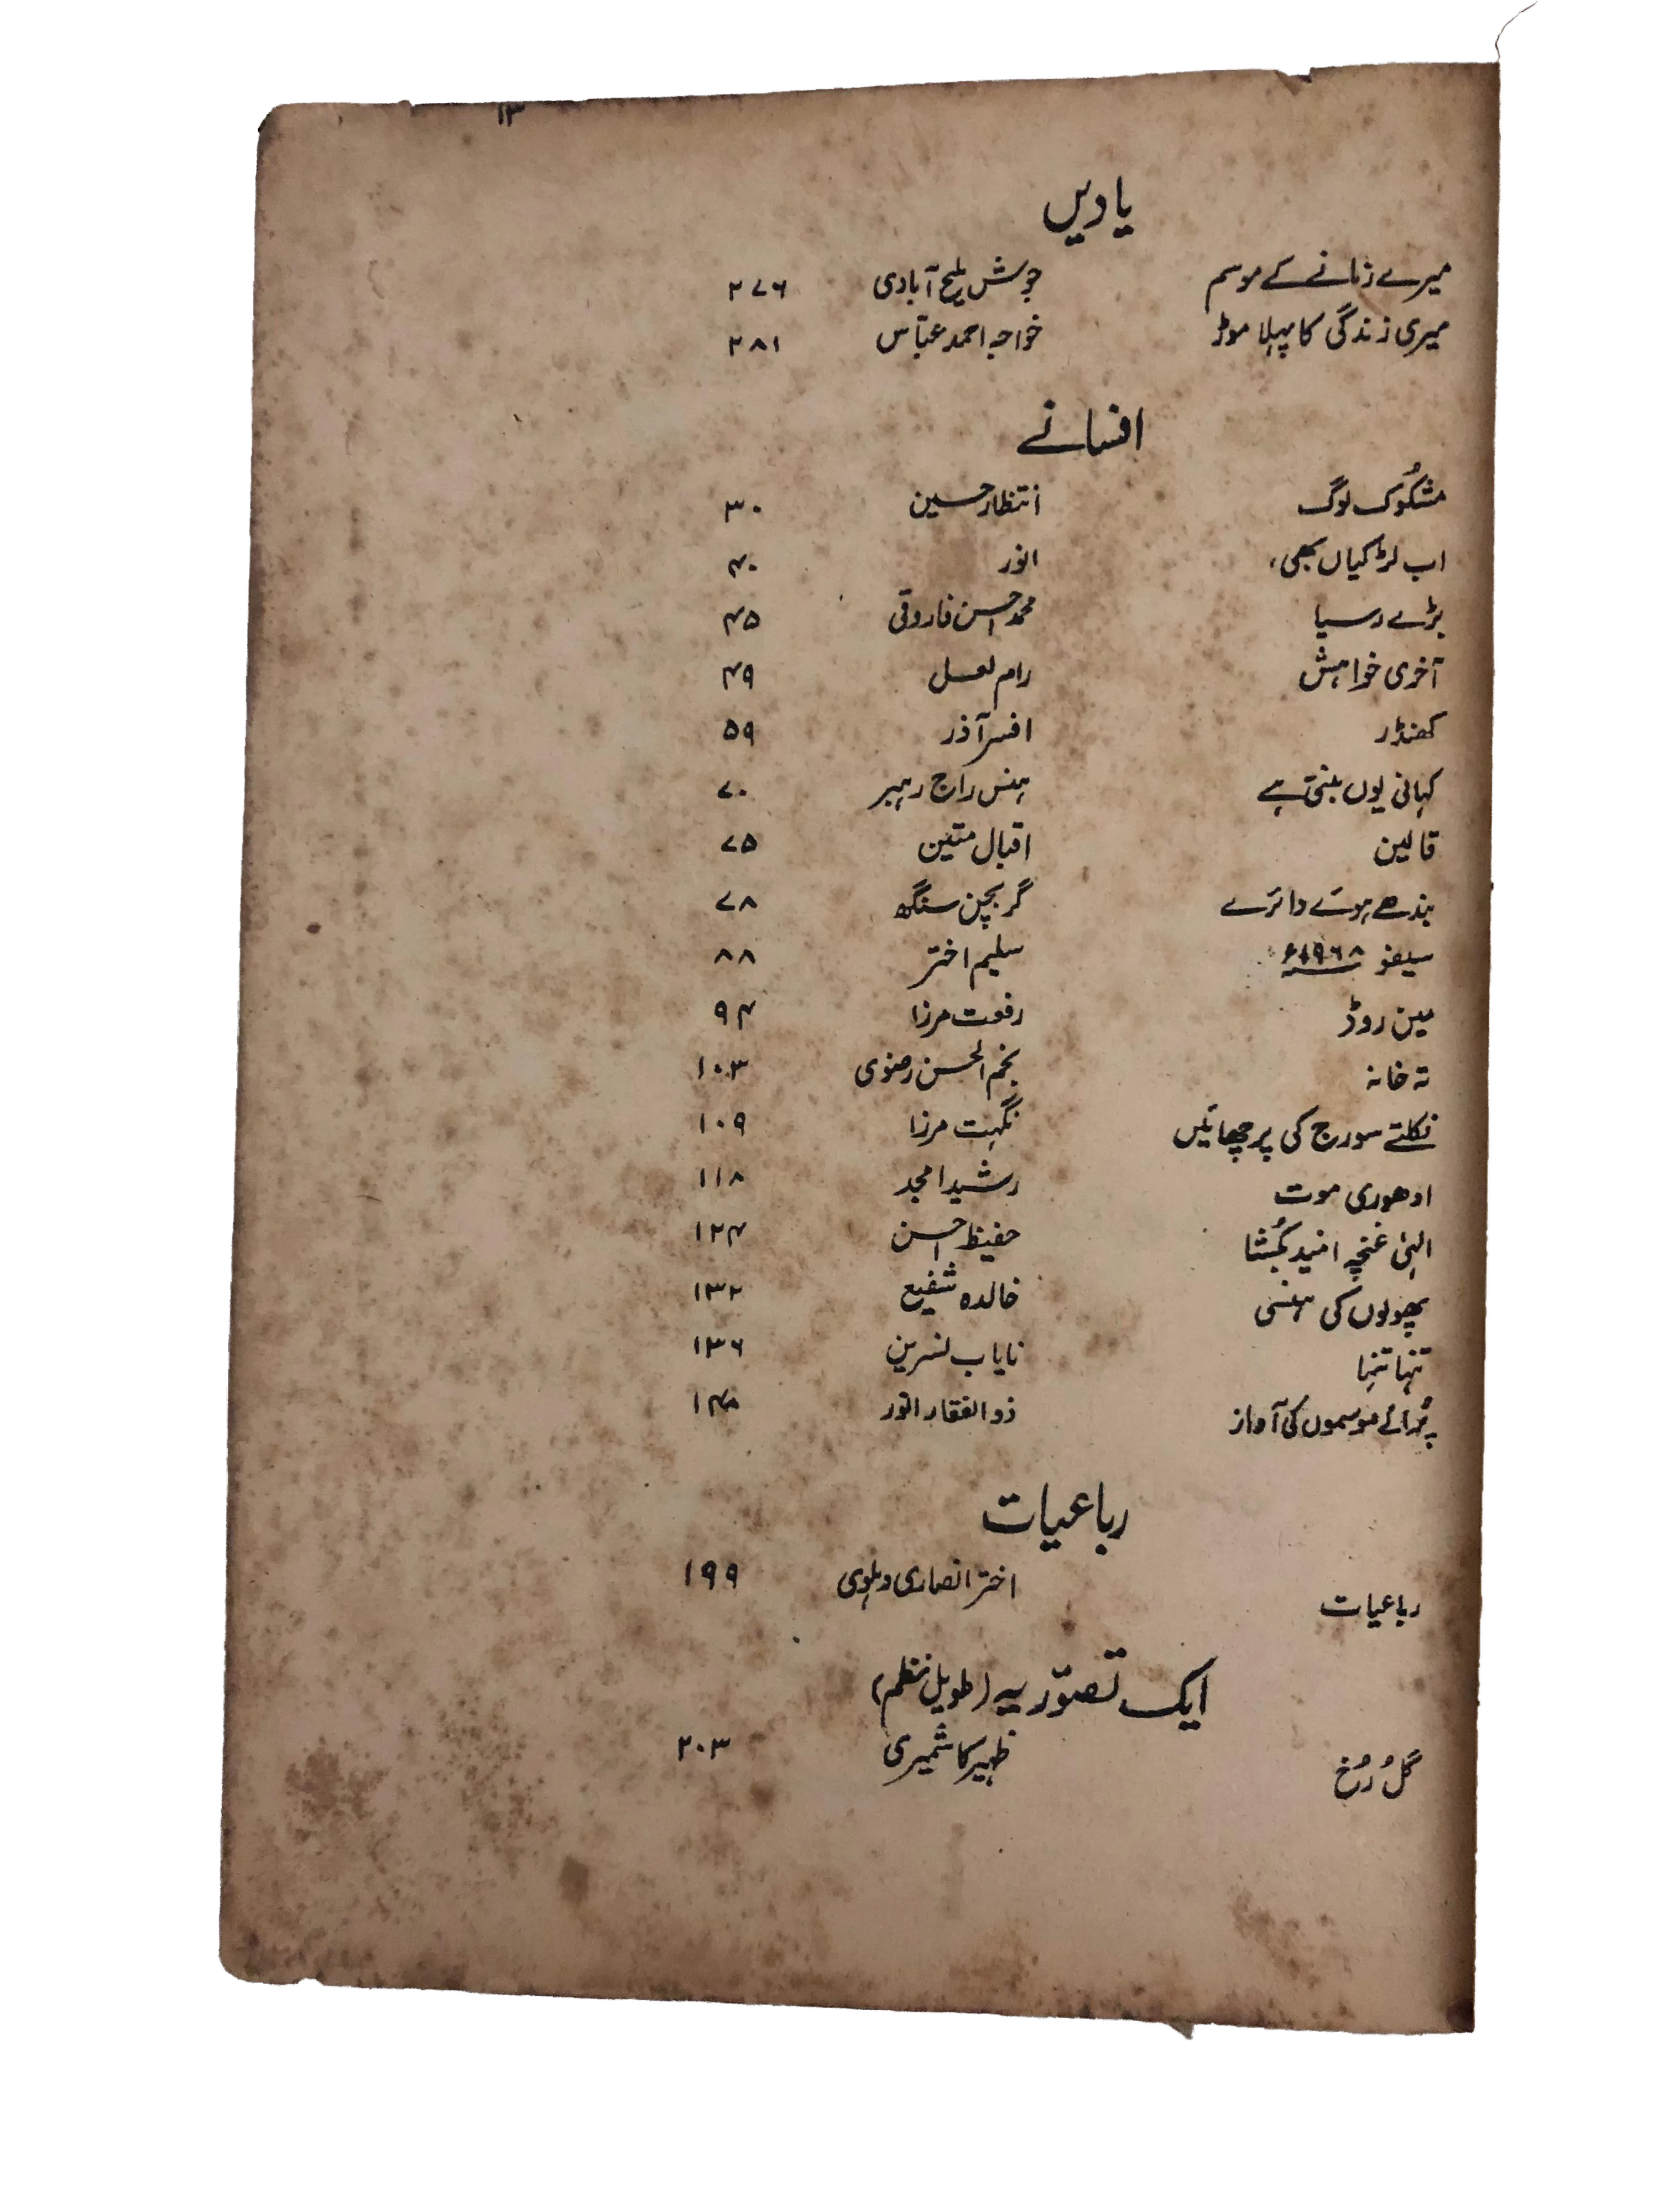 ۱۳
یادیں
میرے زمانے کے موسم جوش ملیح آبادی ۲۷۶
میری زندگی کا پہلا موڑ خواجہ احمد عبّاس ۲۸۱
افسانے
مشکُوک لوگ انتظار حسین ۳۰
اب لڑکیاں بھی، انور ۴۰
بڑے رسیا محمد احسن فاروقی ۴۵
آخری خواہش رام لعل ۴۹
کھنڈر افسر آذر ۵۹
کہانی یوں بنتی ہے ہنس راج رہبر ۷۰
قالین اقبال متین ۷۵
بندھے ہوئے دائرے گربچن سنگھ ۷۸
سیفو ۱۹۶۸ء سلیم اختر ۸۸
مین روڈ رفعت مرزا ۹۴
تہ خانہ نجم الحسن رضوی ۱۰۳
نکلتے سورج کی پرچھائیں نگہت مرزا ۱۰۹
ادھوری موت رشید امجد ۱۱۸
الہٰی غنچہ امید بکُشا حفیظ احسن ۱۲۴
پھولوں کی ہنسی خالدہ شفیع ۱۳۲
تنہا تنہا نایاب نسرین ۱۳۶
پُرانے موسموں کی آواز ذوالفقار انور ۱۴۸
رباعیات
رباعیات اختر انصاری دہلوی ۱۹۹
ایک تصوّریہ (طویل نظم)
گُل رُخ ظہیر کاشمیری ۲۰۳